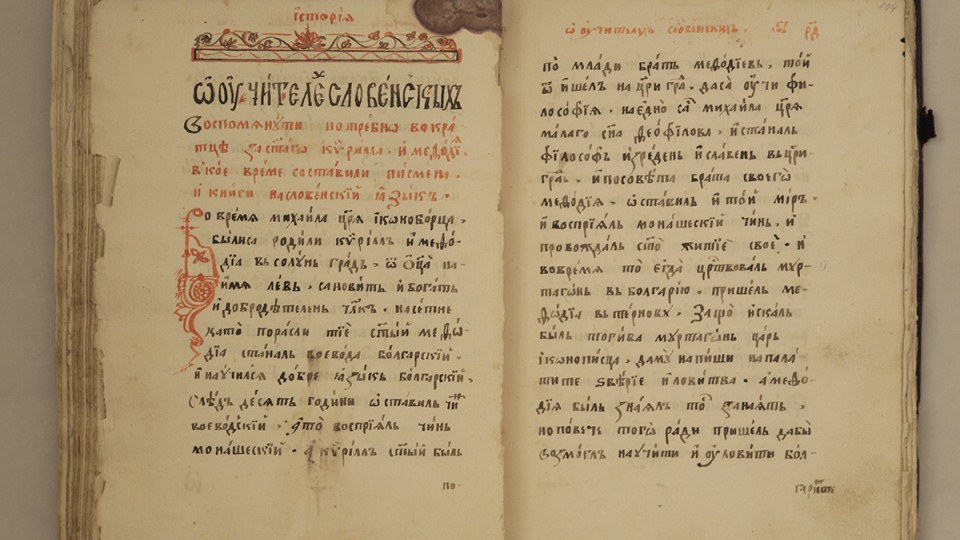 їсторїѧ
Ѿ оу҆чи́теле х слове́нсїкыхъ
Воспомѧнꙋти потребно вокра́
тцѣ за ста́го кѵ́рила. и҆ меѳо́дїѧ
в кое́ време составили писмена̀.
и҆ книги на слове́нскїй ꙗзы́къ.
Во времѧ михаи́ла царѧ̀ їконобо́рца,
былиса родили кѵ́рїллъ и҆ меѳо́-
дїа въ солꙋнь градъ, ѿ ѻ҆ц҃а̀ на-
и́мѧ левь, сановитъ и҆ богатъ
и҆ добродѣтеленъ
като̀ порасли тїе ст҃ы́й меѳѡ́-
дїа стана́лъ воевода бо́лгарскїй.
и҆ научилсѧ до́бре ꙗзы́къ бо́лгарскїй,
слѣдъ де́сѧть годи́ни ѡ҆ста́вилъ чи́нъ
воево́дскїй. а҆ то̀ воспрїѧ́лъ чи́нь
мона́шескїй. а҆ кѵ́риллъ ст҃ы́й былъ
по-
ѡ҆ оу҆чителѧхъ словѣнскихъ. 104
по мла́ди бра́тъ меѳо́дїевъ, то́й
ѿи́шелъ на цр҃и гра̀. да сѧ оу҆чи фи-
лосо́фїѧ. на е҆дно̀ са̀ михаи́ла цр҃ѧ̀
ма́лаго сн҃а ѳеѡ́фїлова, и҆ стана́лъ
фїло́софъ и҆зре́денъ и҆ сла́венъ въ цр҃и-
гра̀, и҆ по совѣ́та бра́та своегѡ̀
меѳо́дїѧ. ѡ҆ста́вилъ и҆ то́й мі́ръ.
и҆ воспрїѧ́лъ мона́шескїй чи́нь, и҆
провожда́лъ ст҃о̀ жи́тїе своѐ. и҆
во времѧ то̀ е҆гда̀ цр҃ствова́лъ мꙋр-
таго́нъ въ болга́рїю. прише́лъ ме-
ѳѡ́дїа въ те́рновъ. защо̀ и҆ска́лъ
бы́лъ тоги́ва мꙋртаго́нъ ца́рь
їконопи́сца, да мꙋ напи́ши на пала́-
тите ѕвѣ́рїе и҆ лови́тва. а҆ меѳѡ́-
дїа бы́лъ зна́ѧлъ то̀ занаѧ́тъ,
но по́вече тогѡ̀ ра́ди прише́лъ дабы̀
возмо́глъ наꙋчи́ти и҆ оу҆лови́ти бо́л-